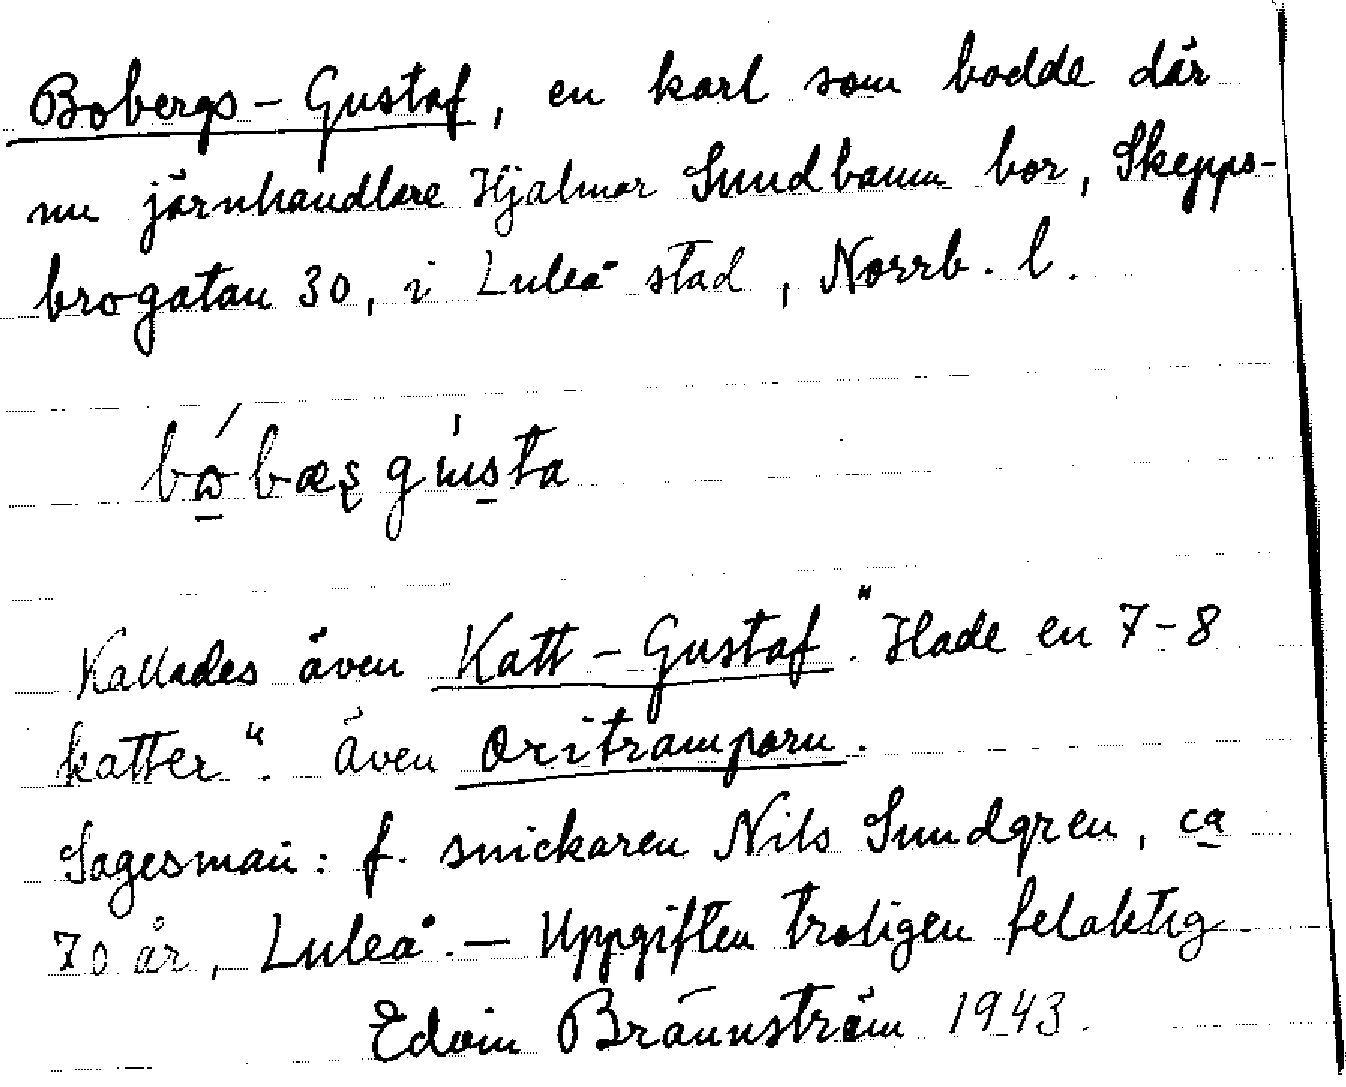 Bobergs-Gustaf, en karl som bodde där
nu järnhandlare Hjalmar Sundbaum bor, Skepps-
brogatan 30, i Luleå stad, Norrb. l.
Kallades även Katt-Gustaf. "Hade en 7-8
katter". Även Oritramparn.
Sagesman: f. snickaren Nils Sundgren, ca
70 år, Luleå. — Uppgiften troligen felaktig
Edvin Brännström 1943.